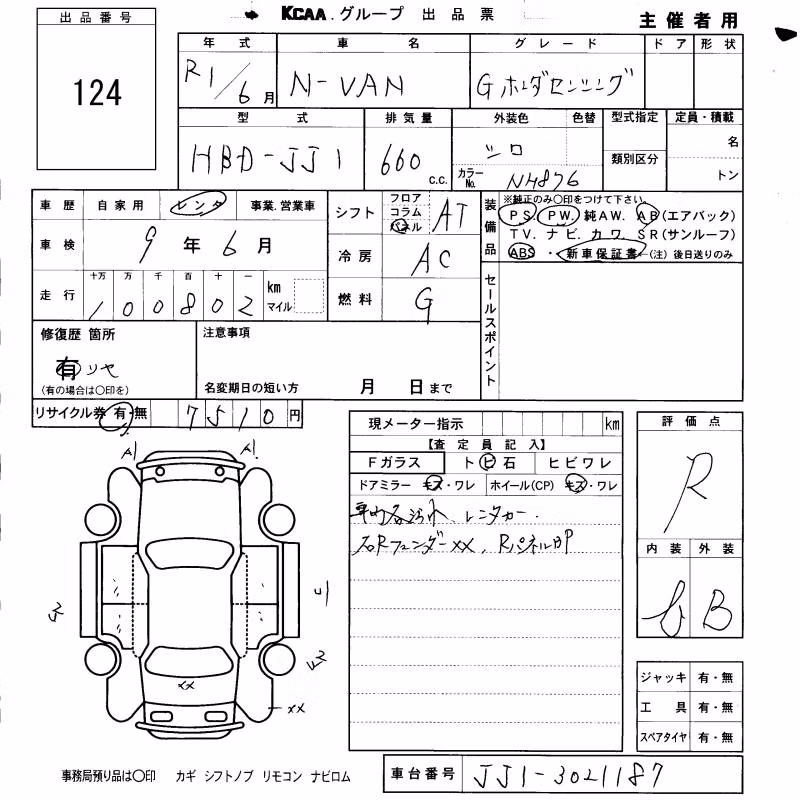 KCAA.グループ 出品票
主催者用
出品番号
124
年式 車名 グレード ドア 形状
R1/6月 N-VAN Gホンダセンシング
型式 排気量 外装色 色替 型式指定 定員・積載
HBD-JJ1 660 c.c. シロ カラーNo. NH876 類別区分 名 トン
車歴 自家用 レンタ 事業.営業車
車検 9年6月
走行 十万 万 千 百 十 一
100802 km マイル
シフト フロア コラム パネル AT
冷房 AC
燃料 G
装備品 ※純正のみ○印をつけて下さい
PS. PW. 純AW. AB(エアバック)
TV. ナビ. カワ. SR(サンルーフ)
ABS ・ 新車保証書 ←(注)後日送りのみ
セールスポイント
修復歴 箇所
有 リヤ
(有の場合は○印を)
注意事項
名変期日の短い方 月 日まで
リサイクル券 有・無 7510円
現メーター指示 km
【査定員記入】
Fガラス ト ビ 石 ヒビワレ
ドアミラー キズ・ワレ ホイール(CP) キズ・ワレ
レンタカー.
右Rフェンダーxx、Rパネル
評価点
R
内装 外装
B
A1 A1
xx
xx
ジャッキ 有・無
工具 有・無
スペアタイヤ 有・無
事務局預り品は○印 カギ シフトノブ リモコン ナビロム
車台番号 JJ1-3021187